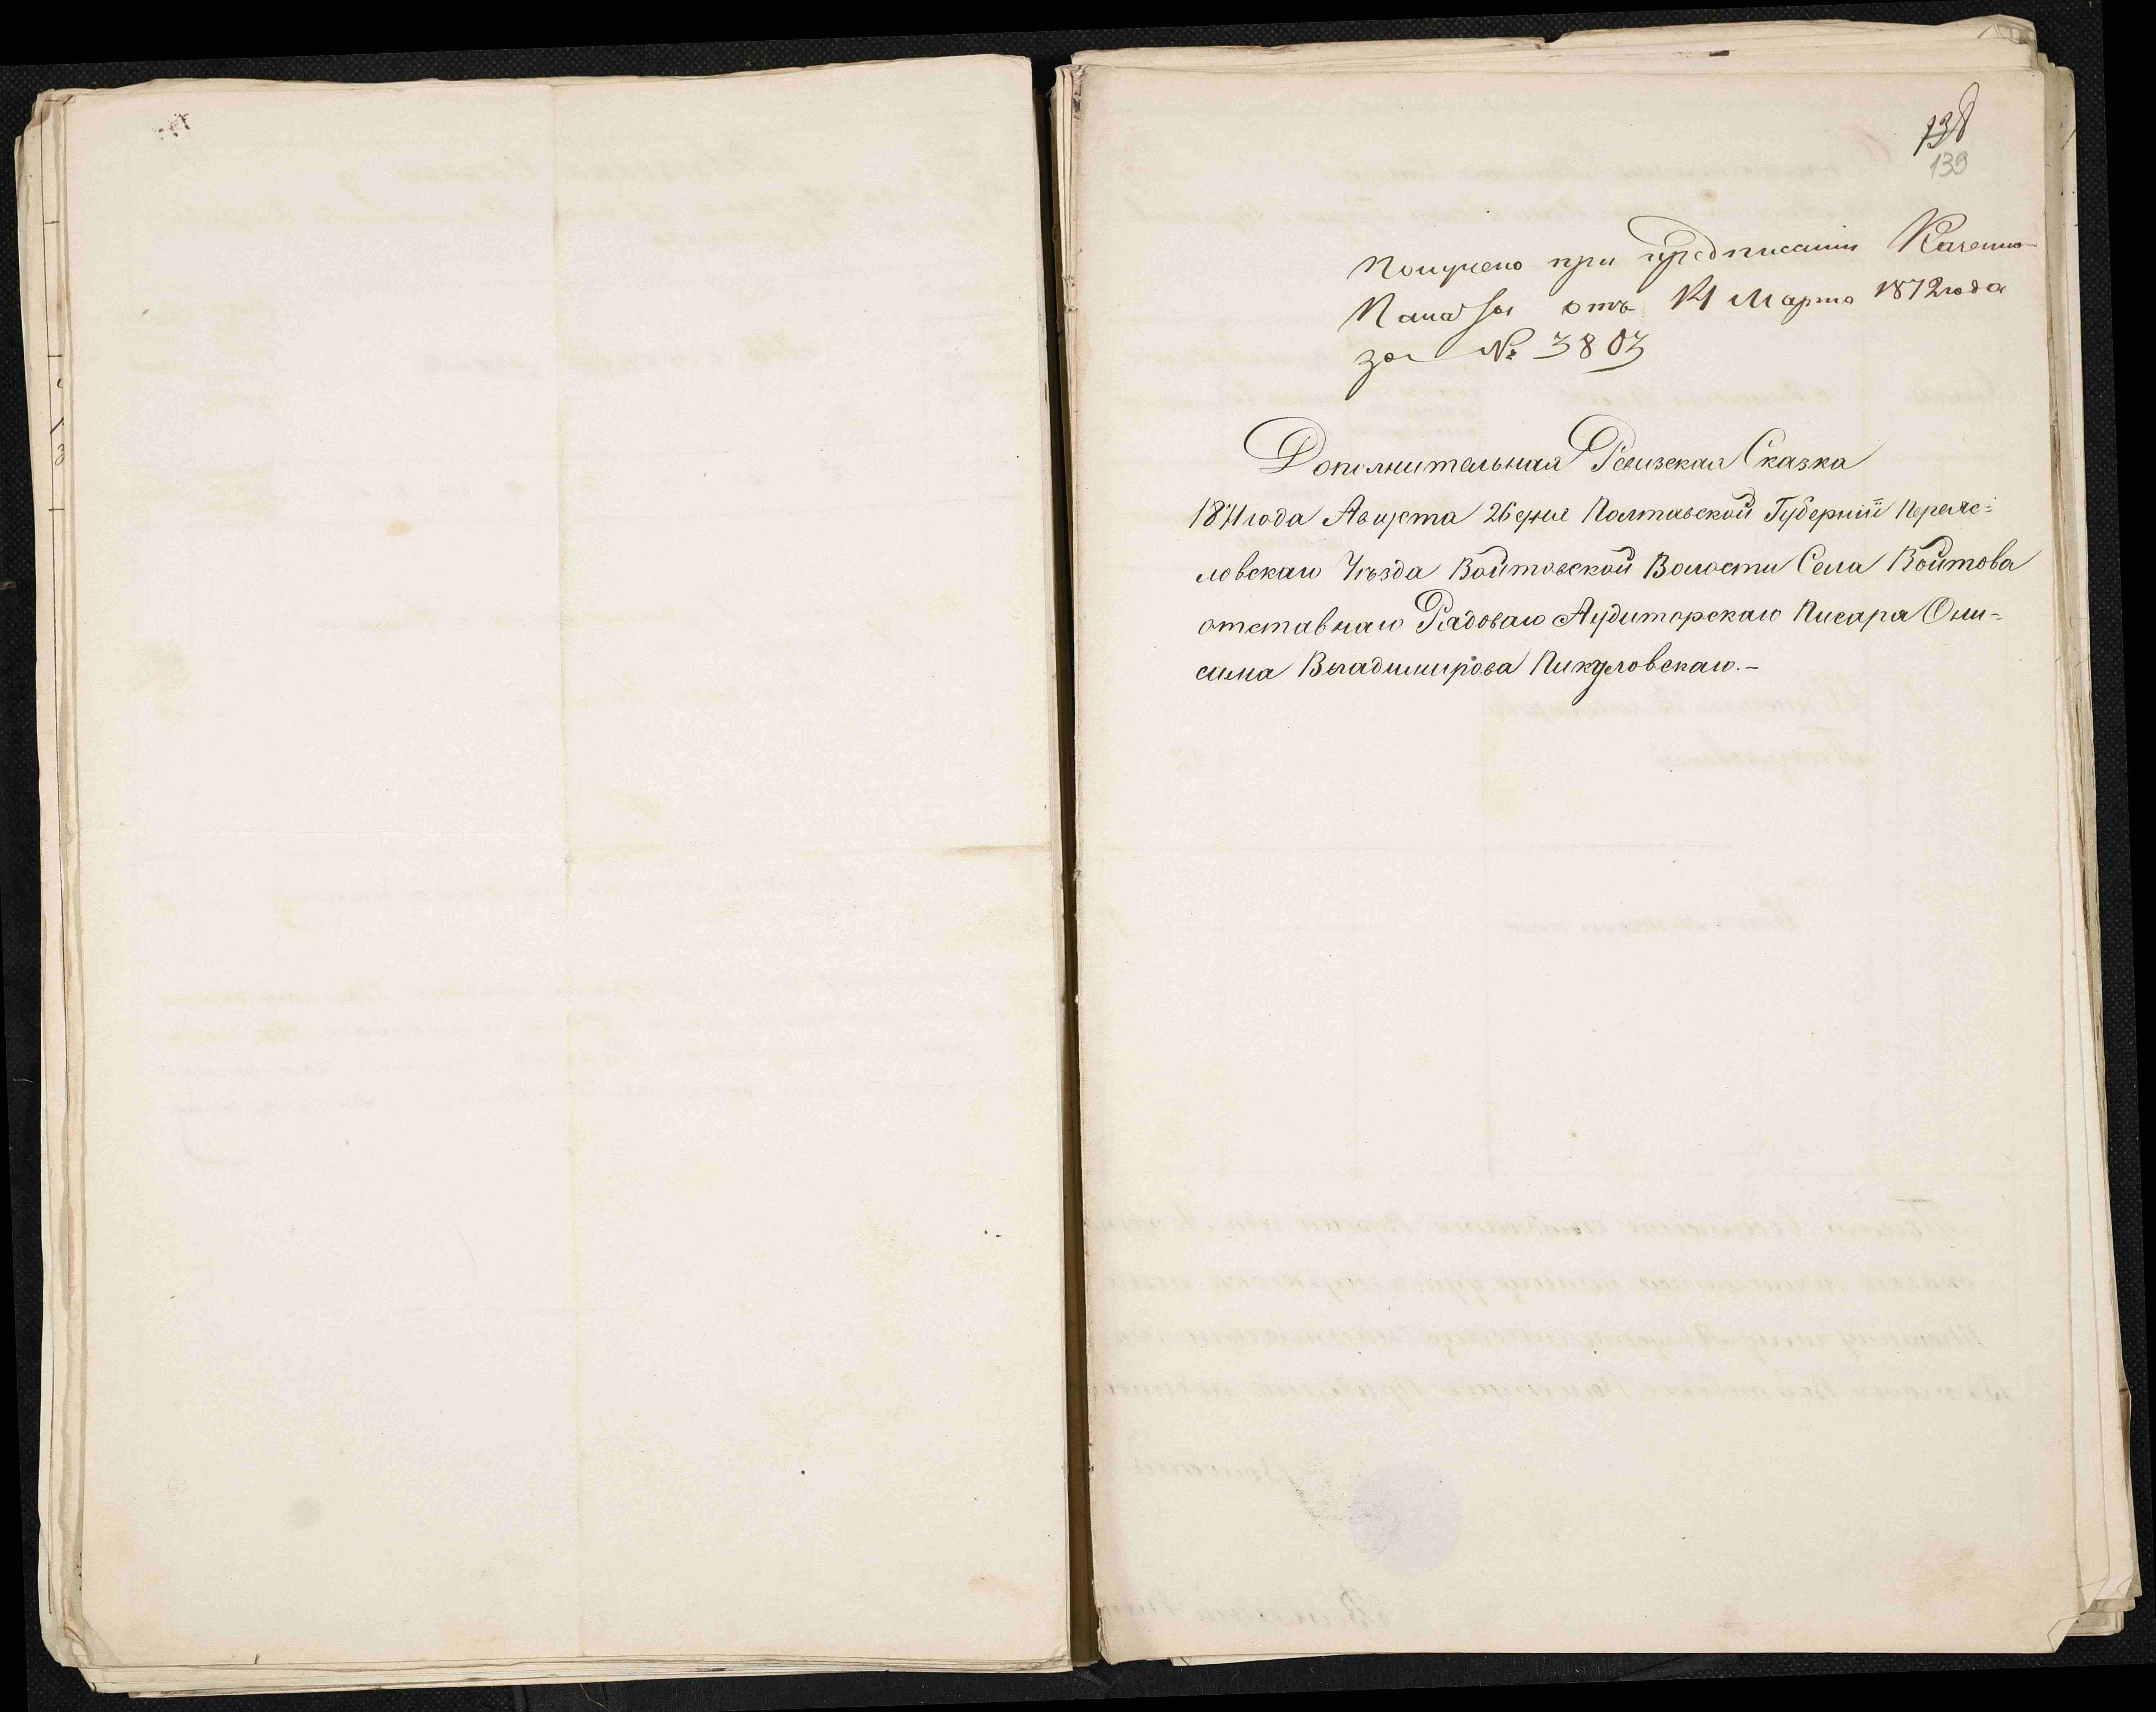 138
139
Получено при предписании Казенно
Палаты отъ 14 Марта 1872 года
за № 3803
Дополнительная Ревизская Сказка
1871 года Августа 26 дня Полтавской Губерніи Переяс=
ловскаго Уѣзда Войтовской Волости Села Войтова
отставнаго Рядоваго Аудиторскаго Писара Они=
сима Владимирова Пикуловскаго.-